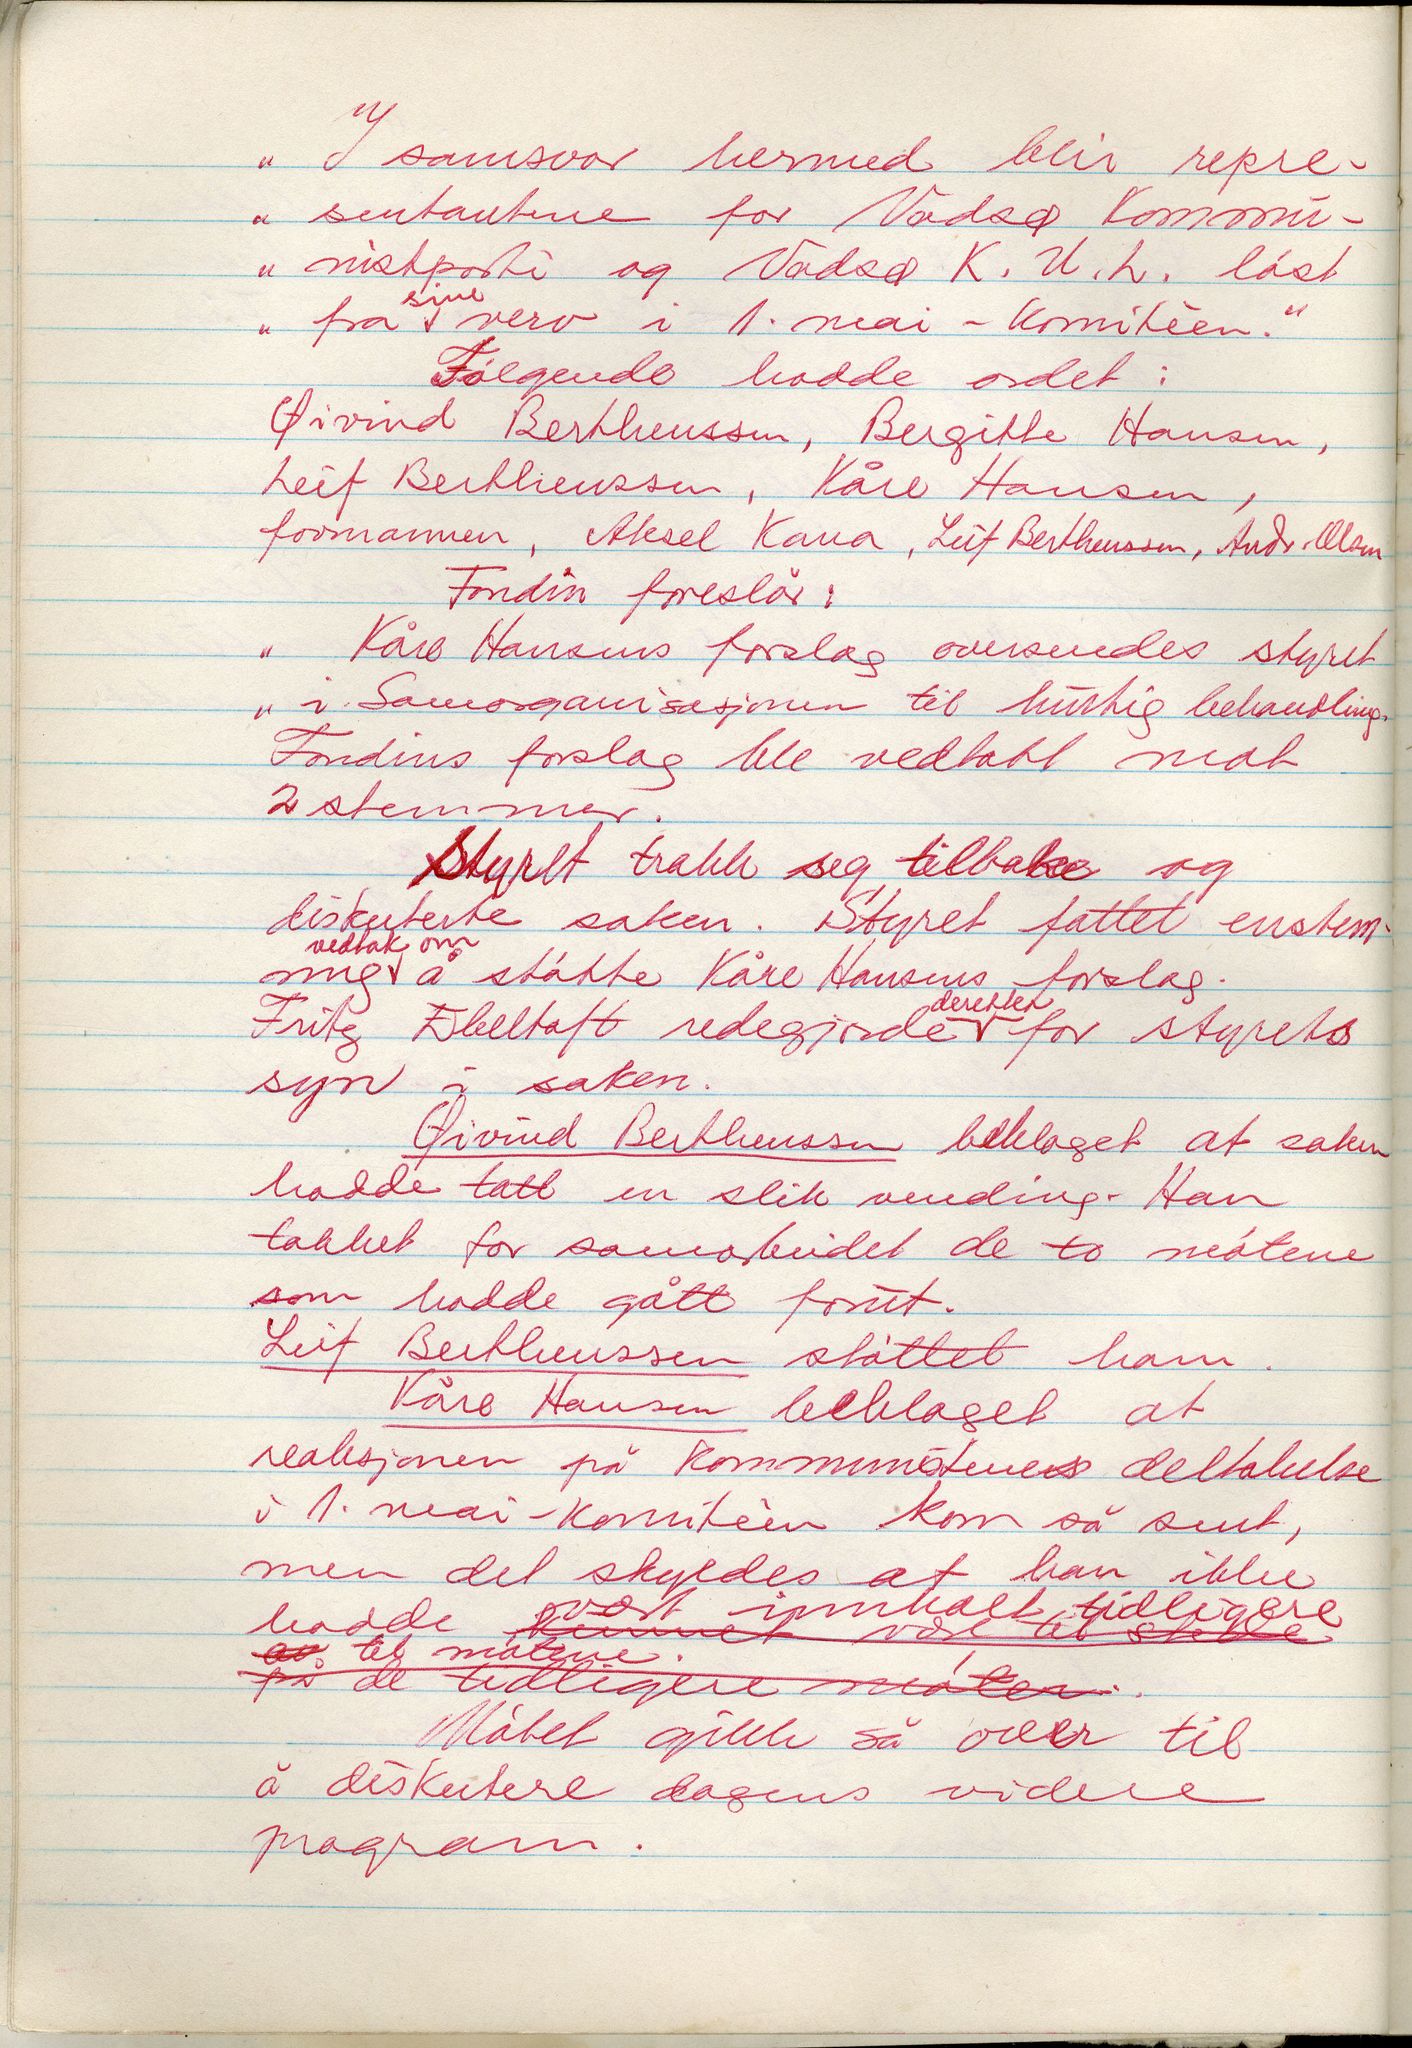 „ I samsvar hermed blir repre-
„ sentantene for Vadsø Kommu-
„ nistparti og Vadsø K.U.L. løst
„ fra sine verv i 1. mai-Komitèen."
Følgende hadde ordet:
Øivind Bertheussen, Bergitte Hansen,
Leif Bertheussen, Kåre Hansen,
formannen, Aksel Kana, Leif Bertheussen, Andr. Olsen
Fondin foreslår:
„ Kåre Hansens forslag oversendes styret
„ i Samorganisasjonen til hurtig behandling.
Fondins forslag ble vedtatt mot
2 stemmer.
Styret trakk seg tilbake og
diskuterte saken. Styret fattet enstem-
mig vedtak om å støtte Kåre Hansens forslag.
Fritz Ebeltoft redegjorde deretter for styrets
syn i saken.
Øivind Bertheussen beklaget at saken
hadde tatt en slik vending. Han
takket for samarbeidet de to møtene
som hadde gått forut.
Leif Bertheussen støttet ham.
Kåre Hansen beklaget at
reaksjonen på Kommunistenes deltakelse
i 1. mai-Komitèen kom så sent,
men det skyldes at han ikke
vært innkalt tidligere
hadde kunnet være til stede
til møtene.
på de tidligere møter.
Møtet gikk så over til
å diskutere dagens videre
program.